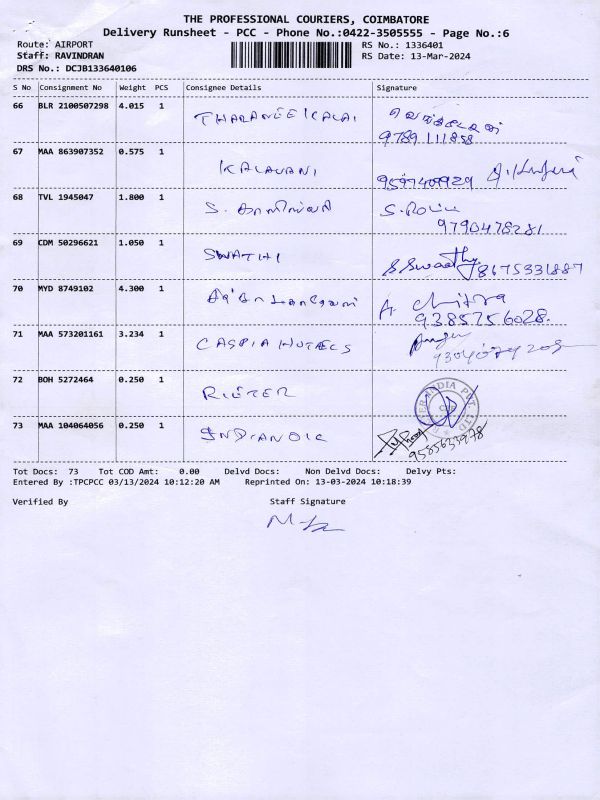 THE PROFESSIONAL COURIERS, COIMBATORE
Delivery Runsheet - PCC - Phone No.:0422-3505555 - Page No.:6
Route: AIRPORT RS No.: 1336401
Staff: RAVINDRAN RS Date: 13-Mar-2024
DRS No.: DCJB133640106
S No Consignment No Weight PCS Consignee Details Signature
66 BLR 2100507298 4.015 1 THARANEE KALAI
9789 111858
67 MAA 863907352 0.575 1 KALAVANI
68 TVL 1945047 1.800 1 S.
9790478281
69 CDM 50296621 1.050 1 SWATHI S. Swaathy 8675331887
70 MYD 8749102 4.300 1 A. Chitra
9385256028.
71 MAA 573201161 3.234 1 CASPIA HOTELS
72 BOH 5272464 0.250 1 RIETER
73 MAA 104064056 0.250 1 INDIAN OIL
9585633978
Tot Docs: 73 Tot COD Amt: 0.00 Delvd Docs: Non Delvd Docs: Delvy Pts:
Entered By :TPCPCC 03/13/2024 10:12:20 AM Reprinted On: 13-03-2024 10:18:39
Verified By Staff Signature